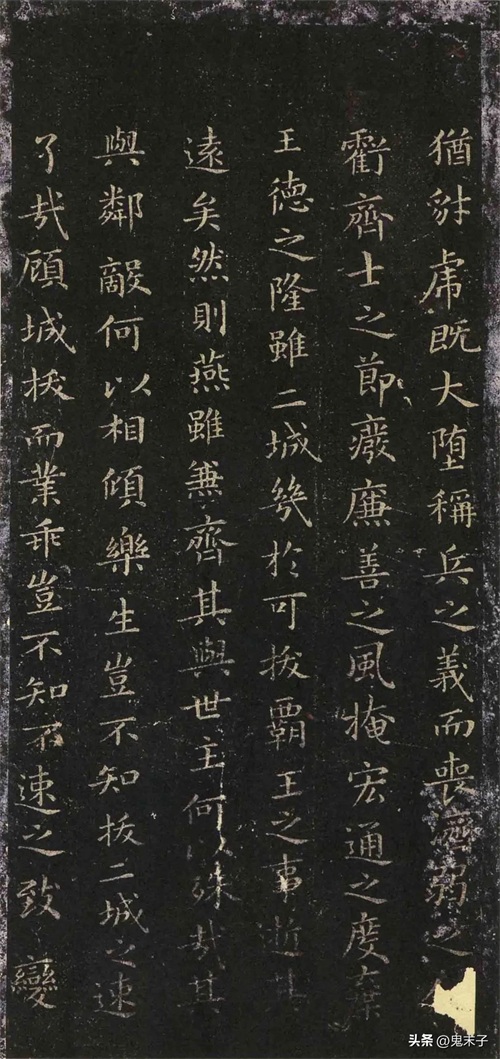 猶豺虎既大墮稱兵之義而喪濟弱之
虧齊士之節廢廉善之風掩宏通之度棄
王德之隆雖二城幾於可拔霸王之事逝其
遠矣然則燕雖兼齊其與世主何以殊哉其
與鄰敵何以相傾樂生豈不知拔二城之速
了哉顧城拔而業乖豈不知不速之致變
头条 @鬼末子